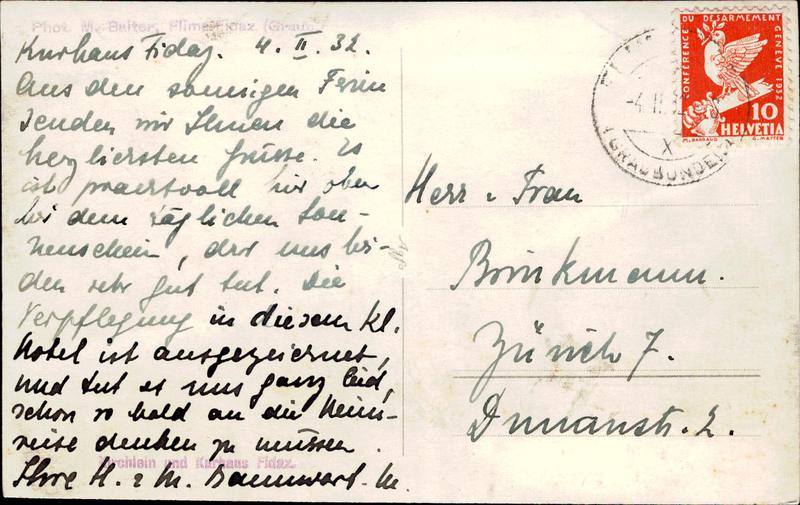 Phot. M. Reiter, Flims-Fidaz. (Graub.
Kurhaus Fidaz. 4. II. 32.
Aus den sonnigen Ferien
senden wir Ihnen die
herzlichsten Grüsse. Es
ist prachtvoll hier oben
bei dem täglichen Son-
nenschein, der uns bei-
den sehr gut tut. Die
Verpflegung in diesem kl.
Hotel ist ausgezeichnet,
und tut es uns ganz leid,
schon so bald an die Heim-
reise denken zu müssen.
Kirchlein und Kurhaus Fidaz.
Ihre H. & M.
CONFÉRENCE DU DÉSARMEMENT GENÈVE 1932
10
HELVETIA
M. BARRAUD G. MATTER
-4.II.
(GRAUBÜNDEN)
Herr u. Frau
Brinkmann.
Zürich 7.
2.